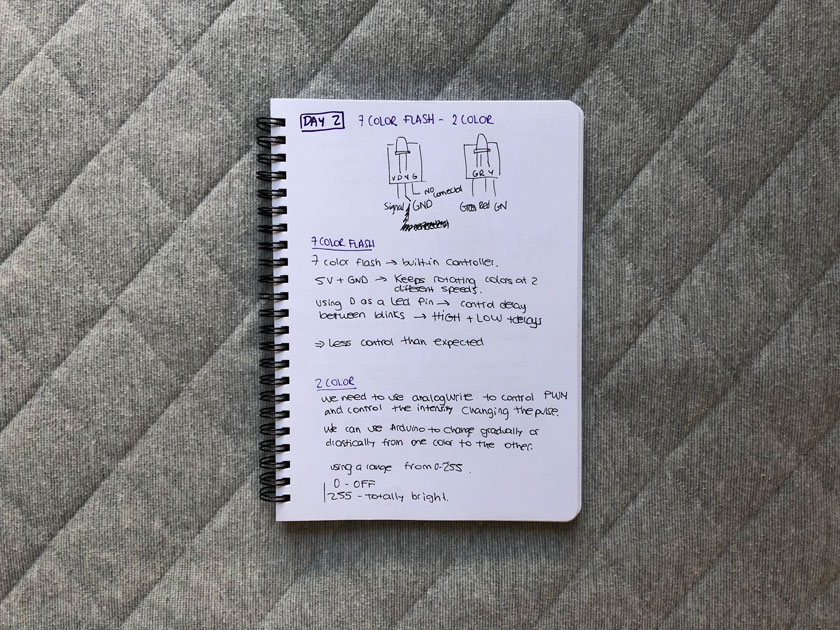 DAY 2 7 COLOR FLASH - 2 COLOR
G R Y
NO connected
Signal GND
Green Red GN
7 COLOR FLASH
7 color flash → built-in controller.
5V + GND → Keeps rotating colors at 2
different speeds.
using D as a Led pin → control delay
between blinks → HIGH + LOW + delays
⇒ Less control than expected
2 COLOR
We need to use analogWrite to control PWM
and control the intensity changing the pulse.
We can use Arduino to change gradually or
drastically from one color to the other.
using a range from 0-255.
0 - OFF
255 - Totally bright.